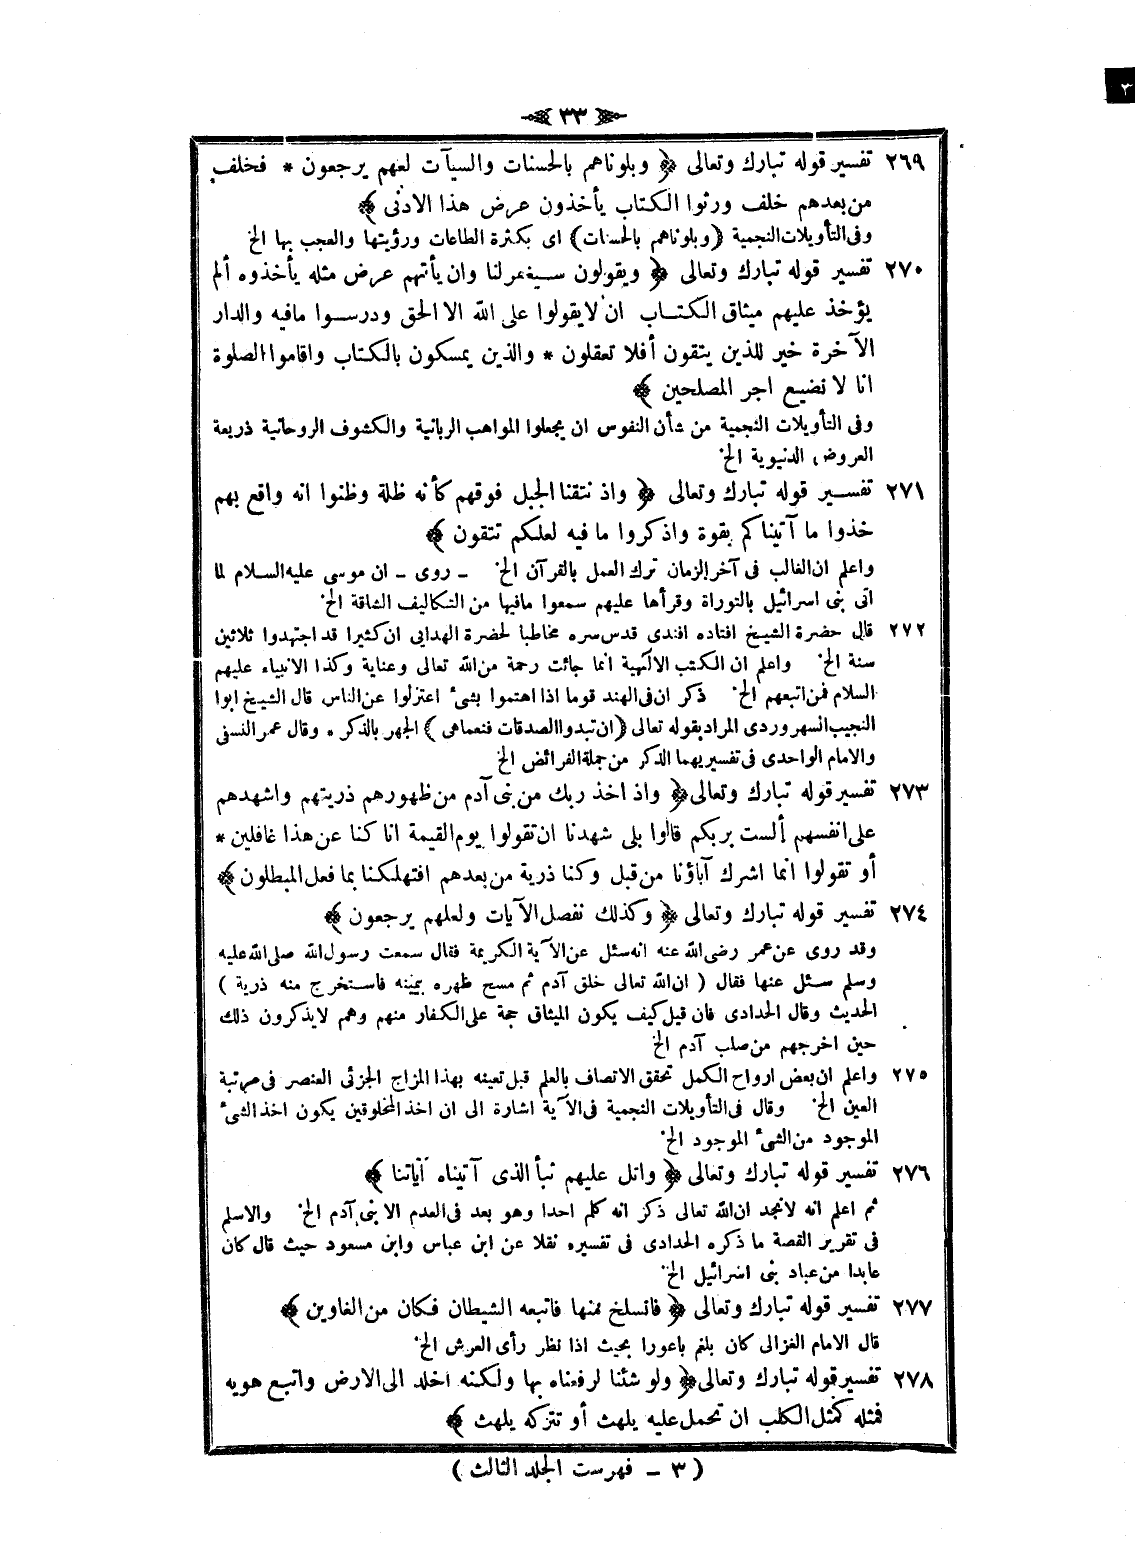 ٣
٣٣
٢٦٩ تفسير قوله تبارك وتعالى ﴿ وبلوناهم بالحسنات والسيآت لعهم يرجعون * فخلف
من بعدهم خلف ورثوا الكتاب يأخذون عرض هذا الادنى ﴾
وفى التأويلات النجمية (وبلوناهم بالحسنات) اى بكثرة الطاعات ورؤيتها والعجب بها الخ
٢٧٠ تفسير قوله تبارك وتعالى ﴿ ويقولون سيغفرلنا وان يأتهم عرض مثله يأخذوه ألم
يؤخذ عليهم ميثاق الكتاب ان لايقولوا على الله الا الحق ودرسوا مافيه والدار
الآخرة خير للذين يتقون أفلا تعقلون * والذين يمسكون بالكتاب واقاموا الصلوة
انا لا نضيع اجر المصلحين ﴾
وفى التأويلات النجمية من شأن النفوس ان يجعلوا المواهب الربانية والكشوف الروحانية ذريعة
العروض الدنيوية الخ
٢٧١ تفسير قوله تبارك وتعالى ﴿ واذ نتقنا الجبل فوقهم كأنه ظلة وظنوا انه واقع بهم
خذوا ما آتيناكم بقوة واذكروا ما فيه لعلكم تتقون ﴾
واعلم ان الغالب فى آخر الزمان ترك العمل بالقرآن الخ ـ روى ـ ان موسى عليه السلام لما
اتى بنى اسرائيل بالتوراة وقرأها عليهم سمعوا مافيها من التكاليف الشاقة الخ
٢٧٢ قال حضرة الشيخ افتاده افندى قدس سره مخاطبا لحضرة الهدايى ان كثيرا قد اجتهدوا ثلاثين
سنة الخ واعلم ان الكتب الالهية انما جائت رحمة من الله تعالى وعناية وكذا الانبياء عليهم
السلام فمن اتبعهم الخ ذكر ان فى الهند قوما اذا اهتموا بشىء اعتزلوا عن الناس قال الشيخ ابوا
النجيب السهروردى المراد بقوله تعالى (ان تبدوا الصدقات فنعماهى) الجهر بالذكر * وقال عمر النسفى
والامام الواحدى فى تفسيريهما الذكر من جملة الفرائض الخ
٢٧٣ تفسير قوله تبارك وتعالى ﴿ واذ اخذ ربك من بنى آدم من ظهورهم ذريتهم واشهدهم
على انفسهم ألست بربكم قالوا بلى شهدنا ان تقولوا يوم القيمة انا كنا عن هذا غافلين *
أو تقولوا انما اشرك آباؤنا من قبل وكنا ذرية من بعدهم افتهلكنا بما فعل المبطلون ﴾
٢٧٤ تفسير قوله تبارك وتعالى ﴿ وكذلك نفصل الآيات ولعلهم يرجعون ﴾
وقد روى عن عمر رضى الله عنه انه سئل عن الآية الكريمة فقال سمعت رسول الله صلى الله عليه
وسلم سئل عنها فقال ( ان الله تعالى خلق آدم ثم مسح ظهره بيمينه فاستخرج منه ذرية )
الحديث وقال الحدادى فان قيل كيف يكون الميثاق حجة على الكفار منهم وهم لايذكرون ذلك
حين اخرجهم من صلب آدم الخ
٢٧٥ واعلم ان بعض ارواح الكمل تحقق الاتصاف بالعلم قبل تعينه بهذا المزاج الجزئى العنصر فى مرتبة
العين الخ وقال فى التأويلات النجمية فى الآية اشارة الى ان اخذ المخلوقين يكون اخذ الشىء
الموجود من الشىء الموجود الخ
٢٧٦ تفسير قوله تبارك وتعالى ﴿ واتل عليهم نبأ الذى آتيناه آياتنا ﴾
ثم اعلم انه لانجد ان الله تعالى ذكر انه كلم احدا وهو بعد فى العدم الا بنى آدم الخ والاسلم
فى تقرير القصة ما ذكره الحدادى فى تفسيره نقلا عن ابن عباس وابن مسعود حيث قال كان
عابدا من عباد بنى اسرائيل الخ
٢٧٧ تفسير قوله تبارك وتعالى ﴿ فانسلخ منها فاتبعه الشيطان فكان من الغاوين ﴾
قال الامام الغزالى كان بلعم باعورا بحيث اذا نظر رأى العرش الخ
٢٧٨ تفسير قوله تبارك وتعالى ﴿ ولو شئنا لرفعناه بها ولكنه اخلد الى الارض واتبع هويه
فمثله كمثل الكلب ان تحمل عليه يلهث أو تتركه يلهث ﴾
( ٣ ـ فهرست الجلد الثالث )